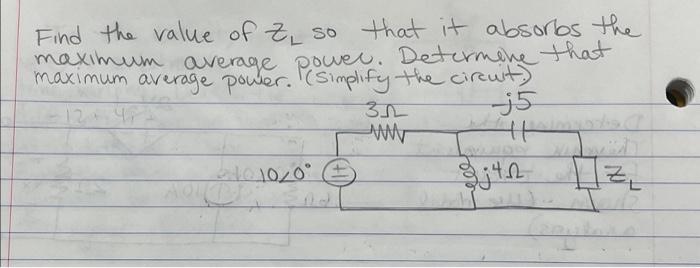 Find the value of Z_L so that it absorbs the
maximum average power. Determine that
maximum average power. (Simplify the circuit)
3Ω -j5
10∠0° + - j4Ω Z_L